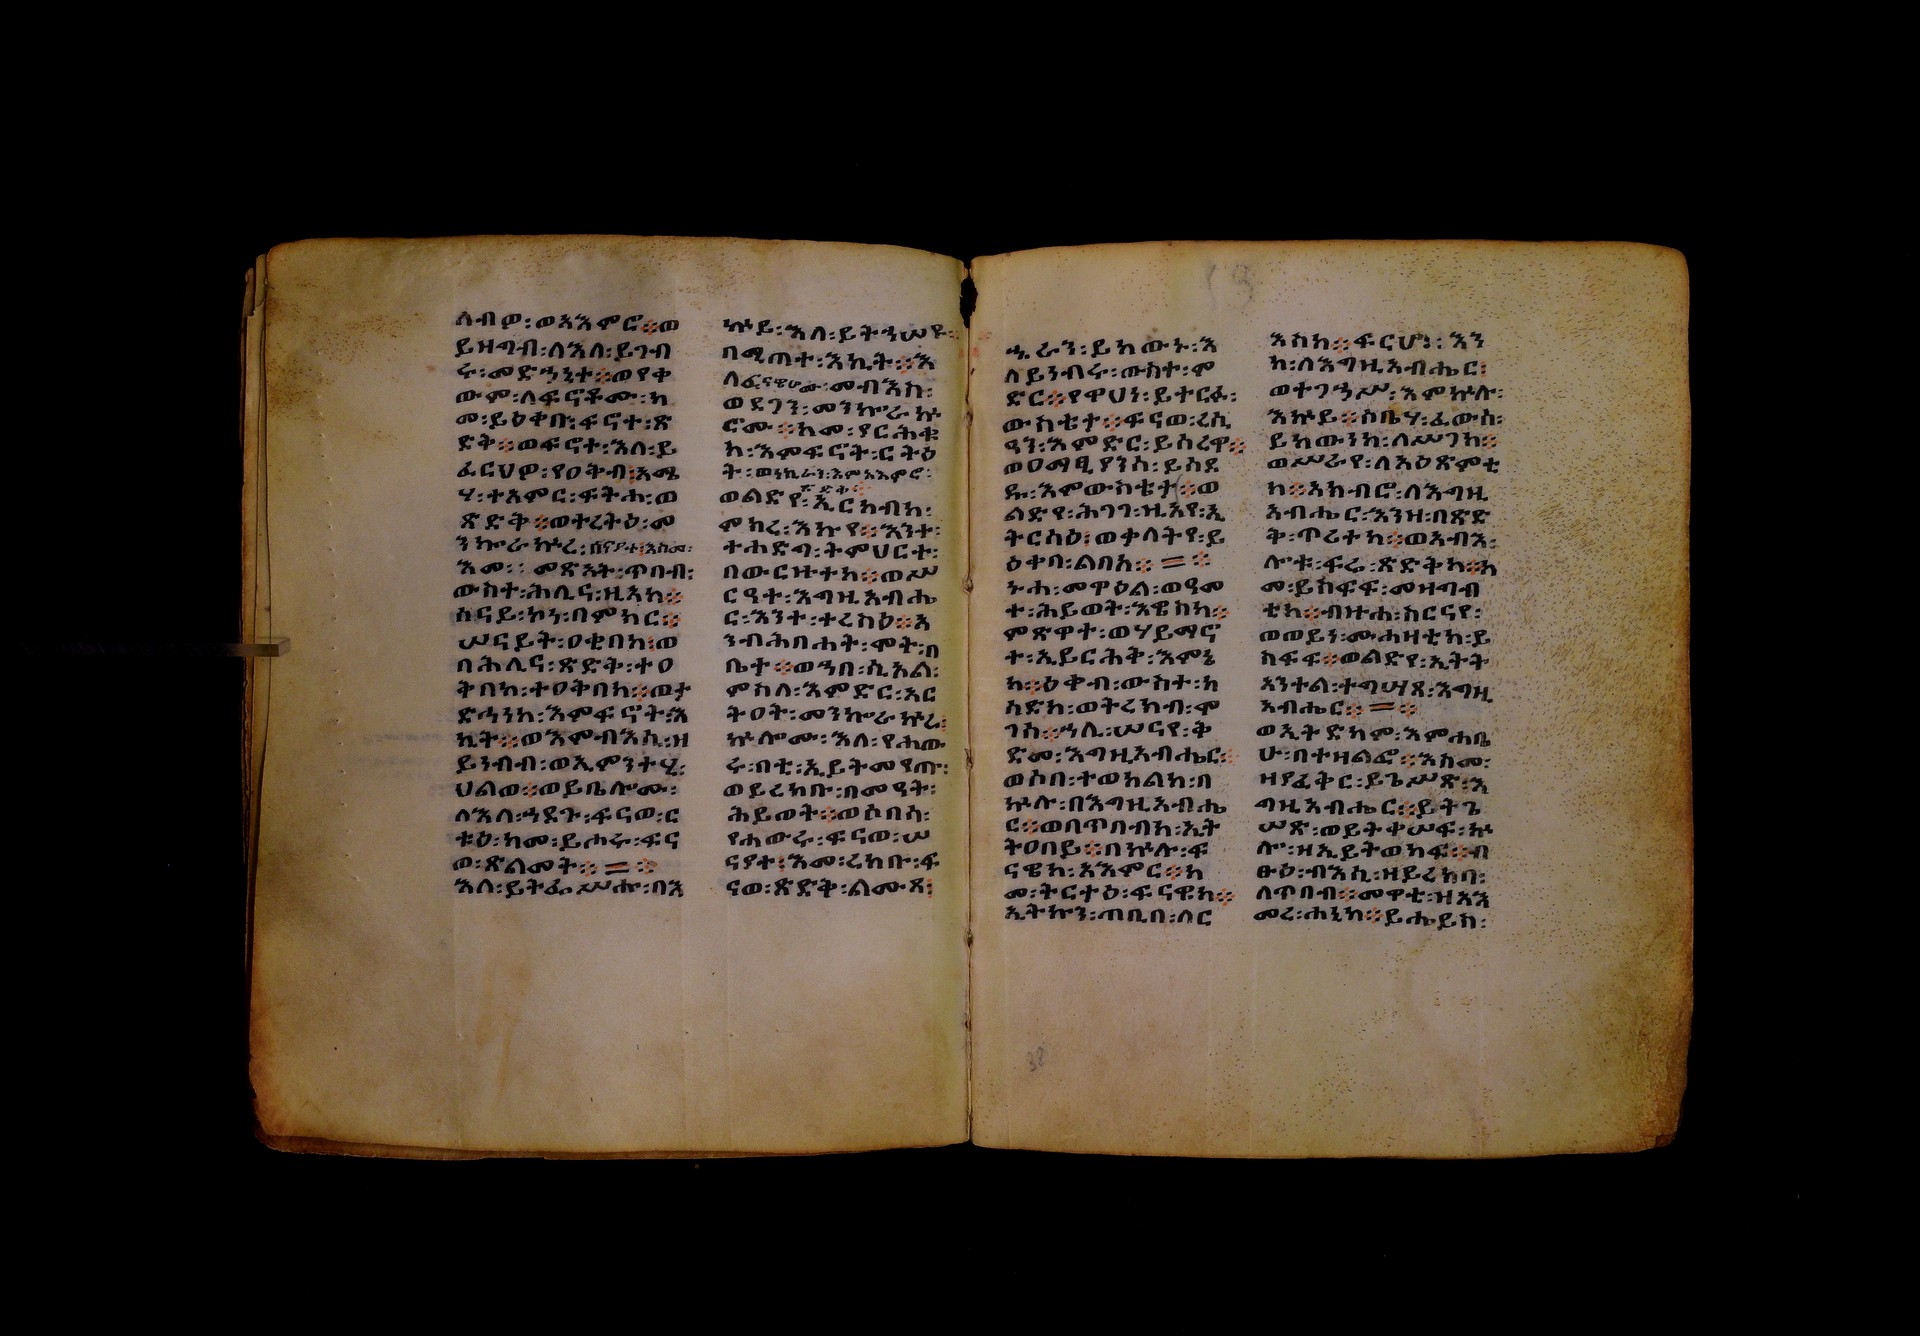 ልብወ፡ወአእምሮ፨ወ
ይዝግብ፡ለእለ፡ይገብ
ሩ፡መድኀኒተ፨ወየቀ
ውም፡ለፍኖቶሙ፡ከ
መ፡ይዕቀቡ፡ፍኖተ፡ጽ
ድቅ፨ወፍኖተ፡እለ፡ይ
ፈርህዎ፡የዐቅብ፡አሜ
ሃ፡ተአምር፡ፍትሐ፡ወ
ጽድቅ፨ወተረትዕ፡መ
ንኰራኵረ፡ሠናያተ፡እስመ፡
እመ፡መጽአት፡ጥበብ፡
ውስተ፡ሕሊና፡ዚአከ፨
ሰናይ፡ኮነ፡በምክር፨
ሠናይት፡ዐቂበከ፡ወ
በሕሊና፡ጽድቅ፡ተዐ
ቅበከ፡ተዐቅበከ፨ወታ
ድኅንከ፡እምፍኖት፡እ
ኪት፨ወእምብእሲ፡ዘ
ይነብብ፡ወኢምንተሂ፡
ህልወ፨ወይቤሎሙ፡
ለእለ፡ኀደጉ፡ፍናወ፡ር
ቱዕ፡ከመ፡ይሖሩ፡ፍና
ወ፡ጽልመት፨=፨
እለ፡ይትፌሥሑ፡በእ
ኵይ፡እለ፡ይትኃሠዩ፡
በሚጠተ፡እኪት፨እ
ለ፡ፍናዊሆሙ፡መብእስ፡
ወደገን፡መንኰራኵ
ሮሙ፨ከመ፡ያርሕቁ
ከ፡እምፍኖት፡ርትዕ
ት፡ወነኪራን፡እምአእምሮ፡
ጽድቅ፨
ወልድየ፡ኢርከብከ፡
ምክረ፡እኩየ፨እንተ፡
ተሐድግ፡ትምህርተ፡
በውርዙተከ፨ወሥ
ርዓተ፡እግዚአብሔ
ር፡እንተ፡ተረስዕ፨እ
ንብሕበሐት፡ሞት፡በ
ቤተ፨ወኀበ፡ሲኦል፡
ምስለ፡እምድር፡አር
ትዐት፡መንኰራኵረ፡
ኵሎሙ፡እለ፡የሐው
ሩ፡በቲ፡ኢይትመየጡ፡
ወይረክቡ፡በመዓት፡
ሕይወት፨ወሶበሰ፡
የሐውሩ፡ፍናወ፡ሠ
ናያተ፡እመ፡ረከቡ፡ፍ
ናወ፡ጽድቅ፡ልሙጸ፡
ኄራን፡ይከውኑ፡እ
ለ፡ይነብሩ፡ውስተ፡ም
ድር፨የዋህነ፡ይተርፉ፡
ውስቴታ፨ፍናወ፡ረሲ
ዓን፡እምድር፡ይሰረዋ፨
ወዐማፂያንሰ፡ይሰደ
ዱ፡እምውስቴታ፨ወ
ልድየ፡ሕገገ፡ዚአየ፡ኢ
ትርሳዕ፡ወቃላትየ፡ይ
ዕቀባ፡ልበከ፨=፨
ኑኀ፡መዋዕል፡ወዓመ
ተ፡ሕይወት፡እዌስከከ፨
ምጽዋተ፡ወሃይማኖ
ተ፡ኢይርሕቅ፡እምኔ
ከ፨ዕቅብ፡ውስተ፡ከ
ሳድከ፡ወትረክብ፡ሞ
ገሰ፨ኀሊ፡ሠናየ፡ቅ
ድመ፡እግዚአብሔር፨
ወሶበ፡ተወከልከ፡በ
ኵሉ፡በእግዚአብሔ
ር፨ወበጥበብከ፡ኢት
ትዐበይ፨በኵሉ፡ፍ
ናዌከ፡አእምር፨ከ
መ፡ትርትዕ፡ፍናዊከ፨
ኢትኩን፡ጠቢበ፡ለር
እስከ፨ፍርሆ፡እን
ከ፡ለእግዚአብሔር፡
ወተገኀሥ፡እምኵሉ፡
እኵይ፨ስቤሃ፡ፈውስ፡
ይከውንከ፡ለሥጋከ፨
ወሥራየ፡ለአዕጽምቲ
ከ፨አክብሮ፡ለእግዚ
አብሔር፡እንዘ፡በጽድ
ቅ፡ጥሪተከ፨ወአብእ፡
ሎቱ፡ፍሬ፡ጽድቅከ፨ከ
መ፡ይክፍፍ፡መዛግብ
ቲከ፨ብዙኀ፡ስርናየ፡
ወወይን፡ሙሐዛቲከ፡ይ
ክፍፍ፨ወልድየ፡ኢትት
አንተል፡ተግሣጸ፡እግዚ
አብሔር፨=፨
ወኢትድክም፡እምሐቤ
ሁ፡በተዛልፎ፨እስመ፡
ዘያፈቅር፡ይጌሥጽ፡እ
ግዚአብሔር፨ይትጌ
ሠጽ፡ወይትቀሠፍ፡ኵ
ሎ፡ዘኢይትወከፍ፨ብ
ፁዕ፡ብእሲ፡ዘይረክባ፡
ለጥበብ፨መዋቲ፡ዘአእ
መረ፡ሐኒከ፨ይሔይስ፡